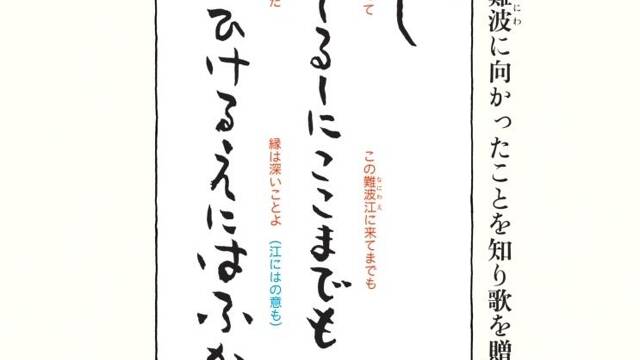 難波に向かったことを知り歌を贈
にわ
し
て
この難波江に来てまでも
なにわえ
しるしにここまでも
た
縁は深いことよ（江にはの意も）
ひけるえにはふか